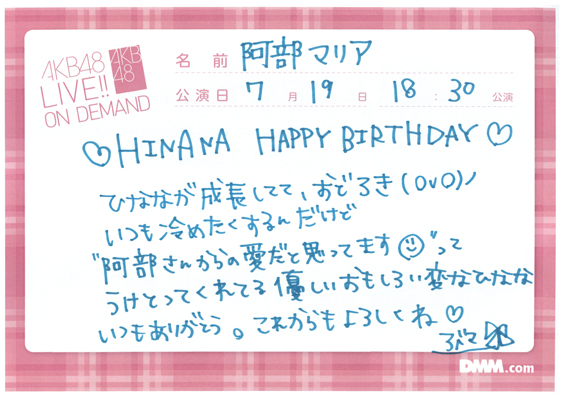 AKB48
LIVE!!
ON DEMAND
AKB
48
名前 阿部マリア
公演日 7月19日 18:30公演
♡HINANA HAPPY BIRTHDAY♡
ひななが成長してて、おどろき(OVO)ノ
いつも冷めたくするんだけど
"阿部さんからの愛だと思ってます☺"って
うけとってくれてる優しいおもしろい変なひなな
いつもありがとう。これからもよろしくね♡
DMM.com